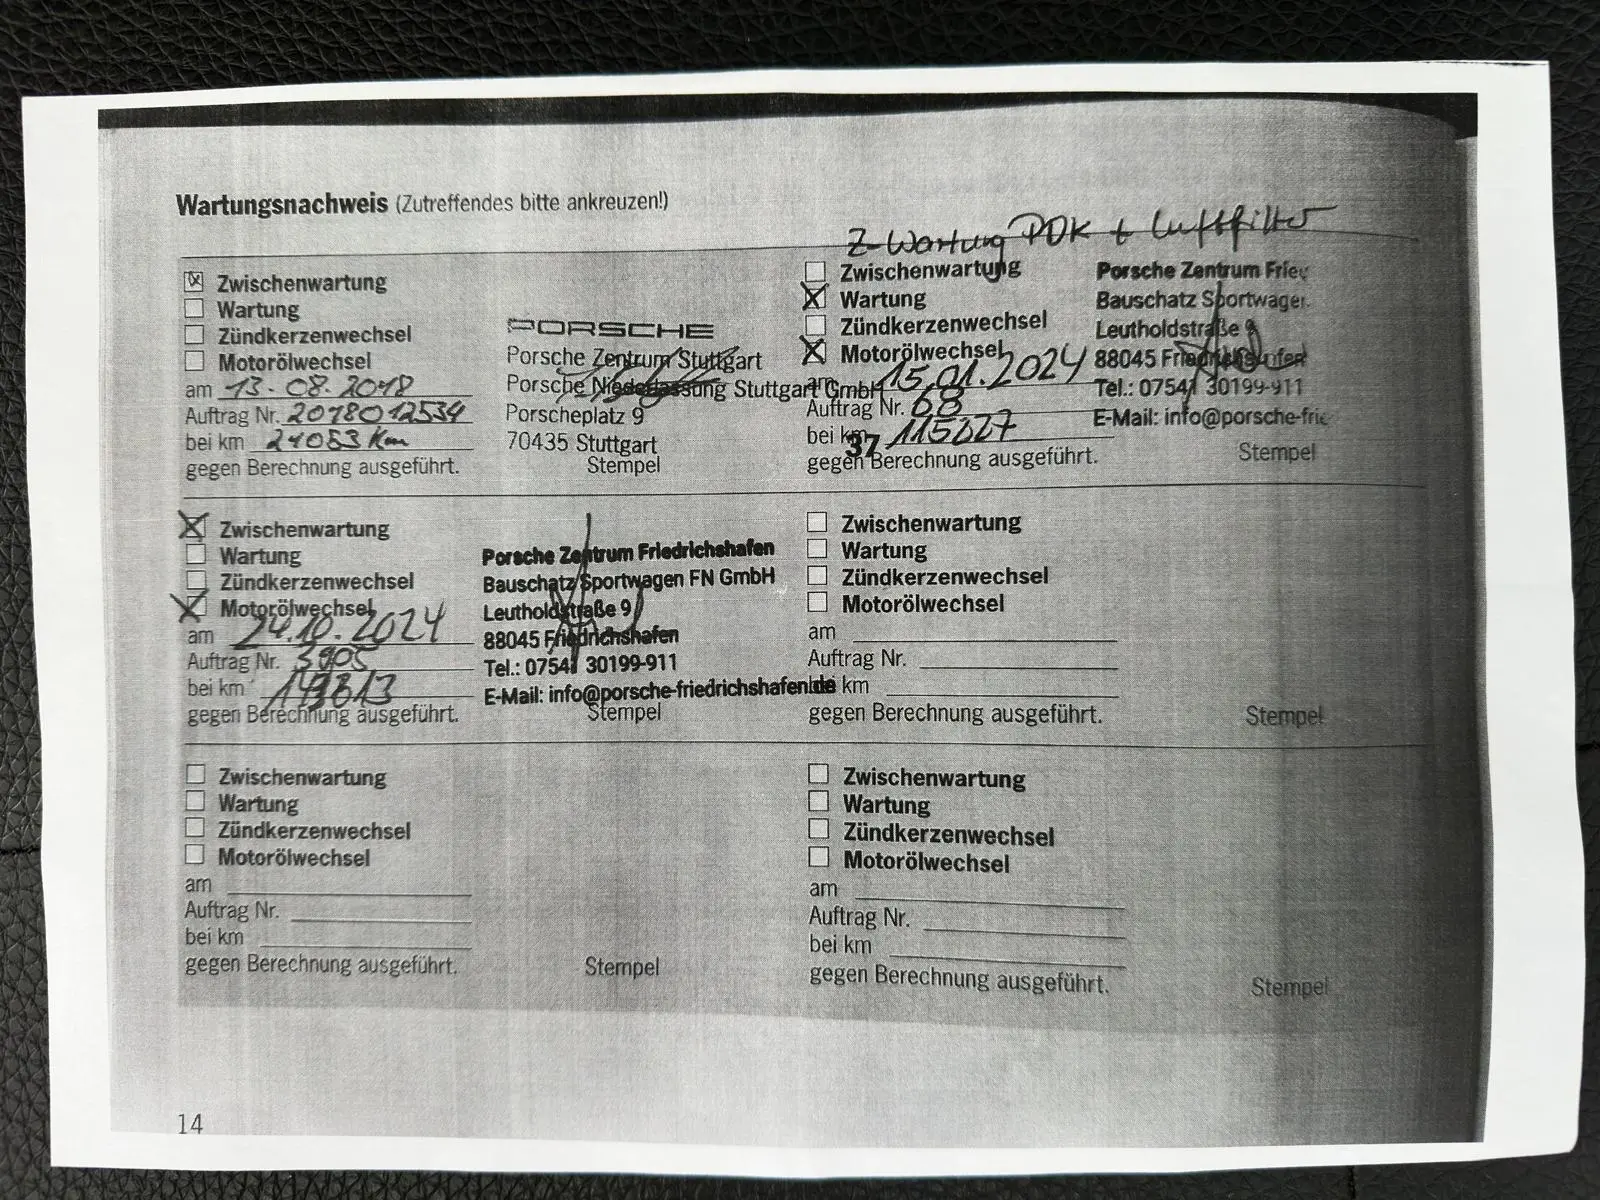 Wartungsnachweis (Zutreffendes bitte ankreuzen!)
Zwischenwartung
Wartung
Zündkerzenwechsel
Motorölwechsel
am 13.08.2018
Auftrag Nr. 2018012534
bei km 21053 Km
gegen Berechnung ausgeführt.
PORSCHE
Porsche Zentrum Stuttgart
Porsche Niederlassung Stuttgart GmbH
Porscheplatz 9
70435 Stuttgart
Stempel
37
Z-Wartung PDK + Luftfilter
Zwischenwartung
Wartung
Zündkerzenwechsel
Motorölwechsel
am 15.01.2024
Auftrag Nr. 68
bei km
gegen Berechnung ausgeführt.
Porsche Zentrum Frie
Bauschatz Sportwagen
Leutholdstraße 9
88045 Friedrichshafen
Tel.: 07541 30199-911
E-Mail: info@porsche-frie
Stempel
Zwischenwartung
Wartung
Zündkerzenwechsel
Motorölwechsel
am 24.10.2024
Auftrag Nr. 3905
bei km
gegen Berechnung ausgeführt.
Porsche Zentrum Friedrichshafen
Bauschatz Sportwagen FN GmbH
Leutholdstraße 9
88045 Friedrichshafen
Tel.: 07541 30199-911
E-Mail: info@porsche-friedrichshafen.de
Stempel
Zwischenwartung
Wartung
Zündkerzenwechsel
Motorölwechsel
am
Auftrag Nr.
bei km
gegen Berechnung ausgeführt.
Stempel
Zwischenwartung
Wartung
Zündkerzenwechsel
Motorölwechsel
am
Auftrag Nr.
bei km
gegen Berechnung ausgeführt.
Stempel
Zwischenwartung
Wartung
Zündkerzenwechsel
Motorölwechsel
am
Auftrag Nr.
bei km
gegen Berechnung ausgeführt.
Stempel
14